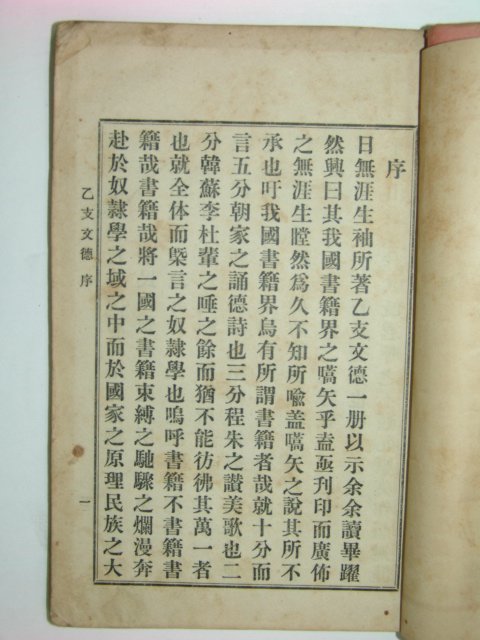 序
日無涯生袖所著乙支文德一册以示余余讀畢躍
然興曰其我國書籍界之嚆矢乎盍亟刊印而廣佈
之無涯生瞠然爲久不知所喩盖嚆矢之說其所不
承也吁我國書籍界烏有所謂書籍者哉就十分而
言五分朝家之誦德詩也三分程朱之讃美歌也二
分韓蘇李杜輩之唾之餘而猶不能彷彿其萬一者
也就全体而槩言之奴隷學也嗚呼書籍不書籍書
籍哉書籍哉將一國之書籍束縛之馳驟之爛漫奔
赴於奴隷學之域之中而於國家之原理民族之大
乙支文德 序
一